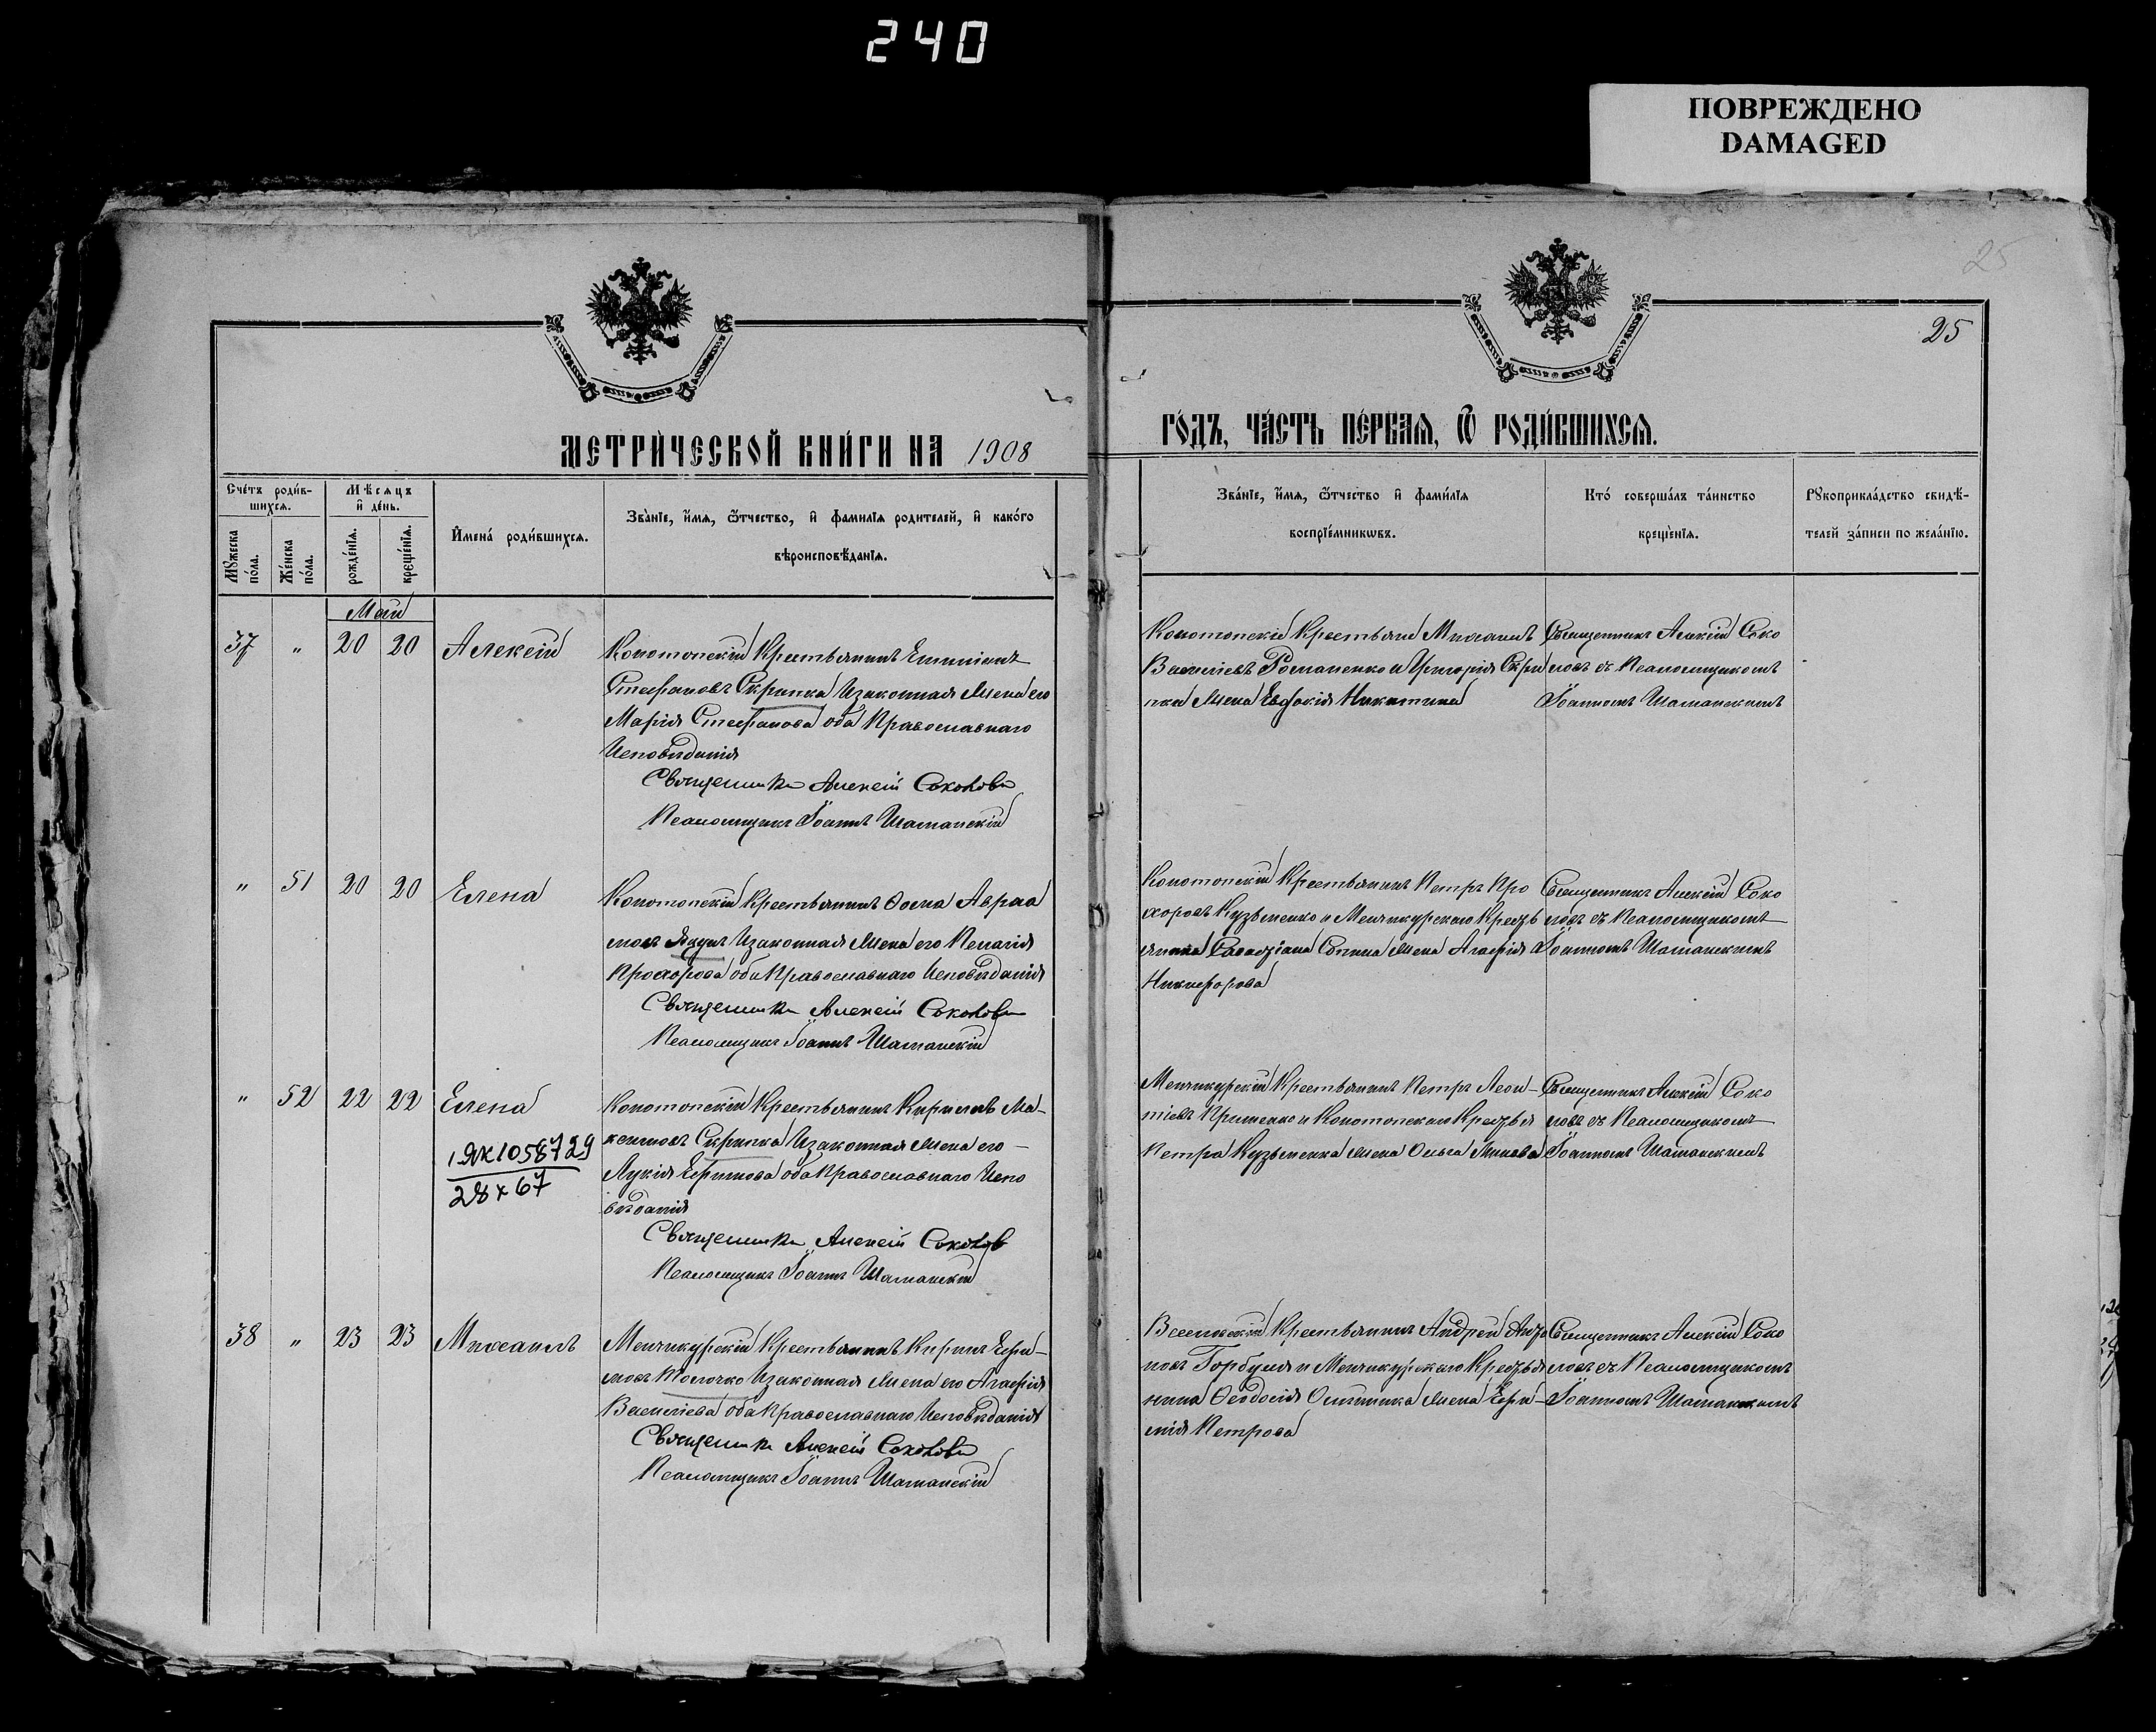 240
ПОВРЕЖДЕНО
DAMAGED
25
25
МЕТРИ́ЧЕСКОЙ КНИ́ГИ НА 1908
ГО́ДЪ, ЧА́СТЬ ПЕ́РВАѦ, Ѿ РОДИ́ВШИХСѦ.
Сче́тъ роди́в-
шихсѧ.
Мꙋ́жеска по́ла.
Же́нска по́ла.
Мѣ́сѧцъ
и҆ де́нь.
рожде́нїѧ.
креще́нїѧ.
И҆мена̀ роди́вшихсѧ.
Зва́нїе, и҆́мѧ, ѻ҆́тчество, и҆ фами́лїѧ роди́телей, и҆ како́гѡ
вѣроисповѣ́данїѧ.
Зва́нїе, и҆́мѧ, ѻ҆́тчество и҆ фами́лїѧ
воспрїе́мникѡвъ.
Кто̀ соверша́лъ та́инство
креще́нїѧ.
Рꙋкоприкла́дство свидѣ́-
телей за́писи по жела́нїю.
Май
37 " 20 20 Алексій
Конотопскій Крестьянинъ
Стефановъ Скрипка Изаконная Жена его
Марія Стефанова оба Православнаго
Исповѣданія
Священникъ Алексій Соколовъ
Псаломщикъ Іоаннъ Шаманскій
Конотопскіе Крестьяне Михаилъ
Василіевъ Романенко и Григорія Скри
пки Жена Евдокія Никитина
Священникъ Алексій Соко
ловъ съ Псаломщикомъ
Іоанномъ Шаманскимъ
" 51 20 20 Елена
Конотопскій Крестьянинъ Ѳома Авраа
мовъ Изаконная Жена его Пелагія
Прохорова оба Православнаго Исповѣданія
Священникъ Алексій Соколовъ
Псаломщикъ Іоаннъ Шаманскій
Конотопскій Крестьянинъ Петръ Про
хоровъ Кузьменко и Менчикурскаго Крестья
янина Жена Агафія
Никифорова
Священникъ Алексій Соко
ловъ съ Псаломщикомъ
Іоанномъ Шаманскимъ
" 52 22 22 Елена
1ЯК1058729
28 х 67
Конотопскій Крестьянинъ Кириллъ Ма-
ксимовъ Скрипка Изаконная Жена его
Лукія Ефимова оба Православнаго Испо
вѣданія
Священникъ Алексій Соколов
Псаломщикъ Іоаннъ Шаманскій
Менчикурскій Крестьянинъ Петръ Леон-
тіевъ и Конотопскаго Крестья
Петра Кузьменка Жена Ольга Минова
Священникъ Алексій Соко
ловъ съ Псаломщикомъ
Іоанномъ Шаманскимъ
38 " 23 23 Михаилъ
Менчикурскій Крестьянинъ Кирилъ Ефи-
мовъ Толочко Изаконная Жена его Агафія
Васильева оба Православнаго Исповѣданія
Священникъ Алексій Соколовъ
Псаломщикъ Іоаннъ Шаманскій
Крестьянинъ Андрей
новъ Горбуля и Менчикурскаго Крестья
нина Ѳеодосія Жена Ефи-
мія Петрова
Священникъ Алексій Соко
ловъ съ Псаломщикомъ
Іоанномъ Шаманскимъ